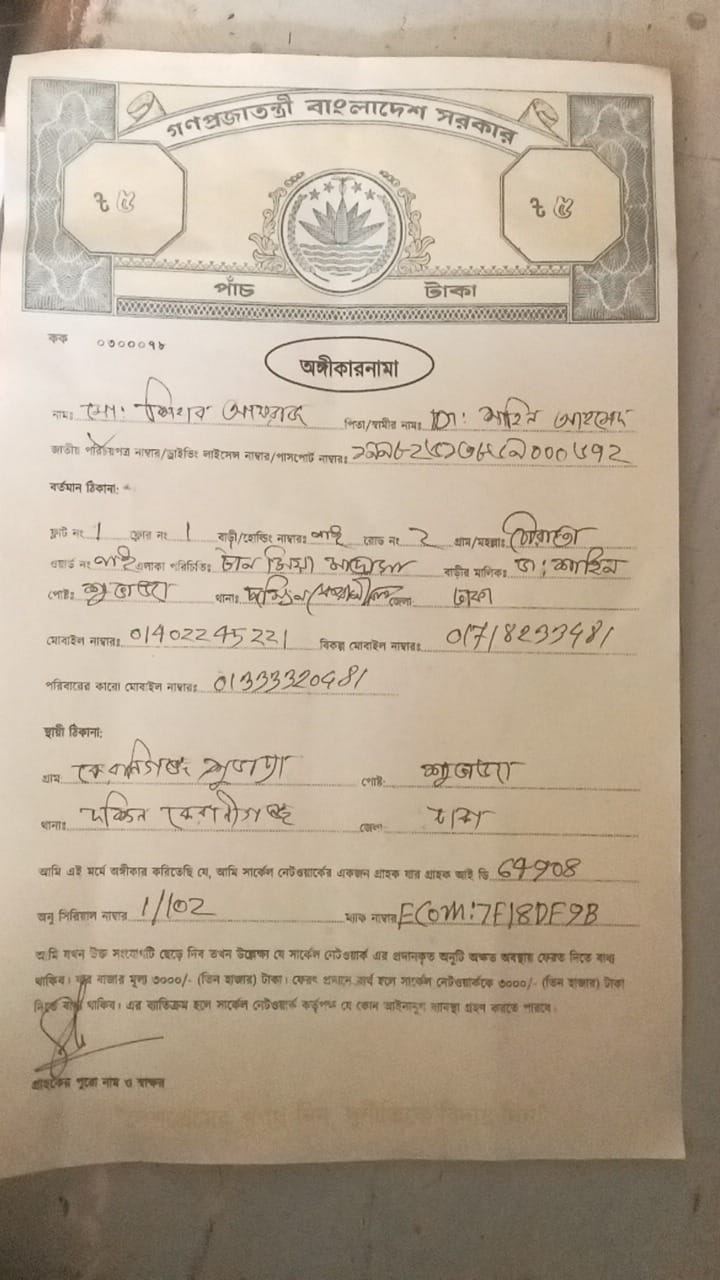 গণপ্রজাতন্ত্রী বাংলাদেশ সরকার
৳ ৫ ৳ ৫
পাঁচ টাকা
কক ০৩০০০৭৮
অঙ্গীকারনামা
নামঃ মো: পিতা/স্বামীর নাম: মো: শাহিন আহমেদ
জাতীয় পরিচয়পত্র নাম্বার/ড্রাইভিং লাইসেন্স নাম্বার/পাসপোর্ট নাম্বারঃ
বর্তমান ঠিকানা: -
ফ্লাট নং 1 ফ্লোর নং 1 বাড়ী/হোল্ডিং নাম্বারঃ নাই রোড নং 2 গ্রাম/মহল্লাঃ
ওয়ার্ড নং নাই এলাকা পরিচিতিঃ বাড়ীর মালিকঃ মো: শাহিন
পোষ্টঃ শুভাড্যা থানাঃ দক্ষিন কেরানীগঞ্জ জেলাঃ ঢাকা
মোবাইল নাম্বারঃ 01402245221 বিকল্প মোবাইল নাম্বারঃ 01718233481
পরিবারের কারো মোবাইল নাম্বারঃ 01333320481
স্থায়ী ঠিকানা:
গ্রামঃ কেরানিগঞ্জ শুভাড্যা পোষ্টঃ শুভাড্যা
থানাঃ দক্ষিন কেরানীগঞ্জ জেলা ঢাকা
আমি এই মর্মে অঙ্গীকার করিতেছি যে, আমি সার্কেল নেটওয়ার্কের একজন গ্রাহক যার গ্রাহক আই ডি 64908
অনু সিরিয়াল নাম্বার 1/102 ম্যাক নাম্বার ECOM:7E18DF9B
আমি যখন উক্ত সংযোগটি ছেড়ে দিব তখন উল্লেক্ষ্য যে সার্কেল নেটওয়ার্ক এর প্রদানকৃত অনুটি অক্ষত অবস্থায় ফেরত দিতে বাধ্য
থাকিব। যার বাজার মূল্য ৩০০০/- (তিন হাজার) টাকা। ফেরৎ প্রদানে ব্যর্থ হলে সার্কেল নেটওয়ার্ককে ৩০০০/- (তিন হাজার) টাকা
দিতে বাধ্য থাকিব। এর ব্যতিক্রম হলে সার্কেল নেটওয়ার্ক কর্তৃপক্ষ যে কোন আইনানুগ ব্যবস্থা গ্রহণ করতে পারবে।
গ্রাহকের পুরো নাম ও স্বাক্ষর